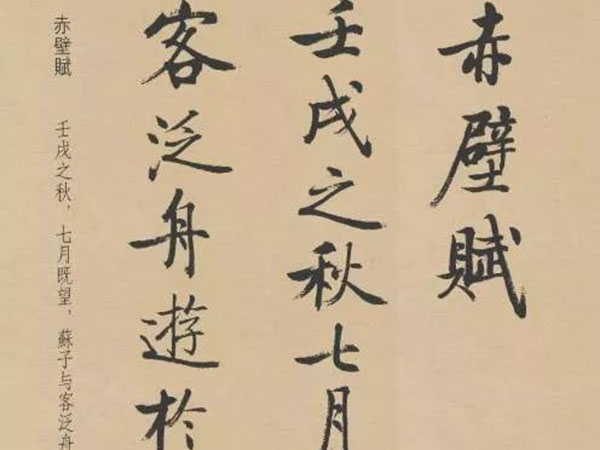 赤壁賦
壬戌之秋七月
客泛舟遊於
赤壁賦 壬戌之秋，七月既望，蘇子与客泛舟